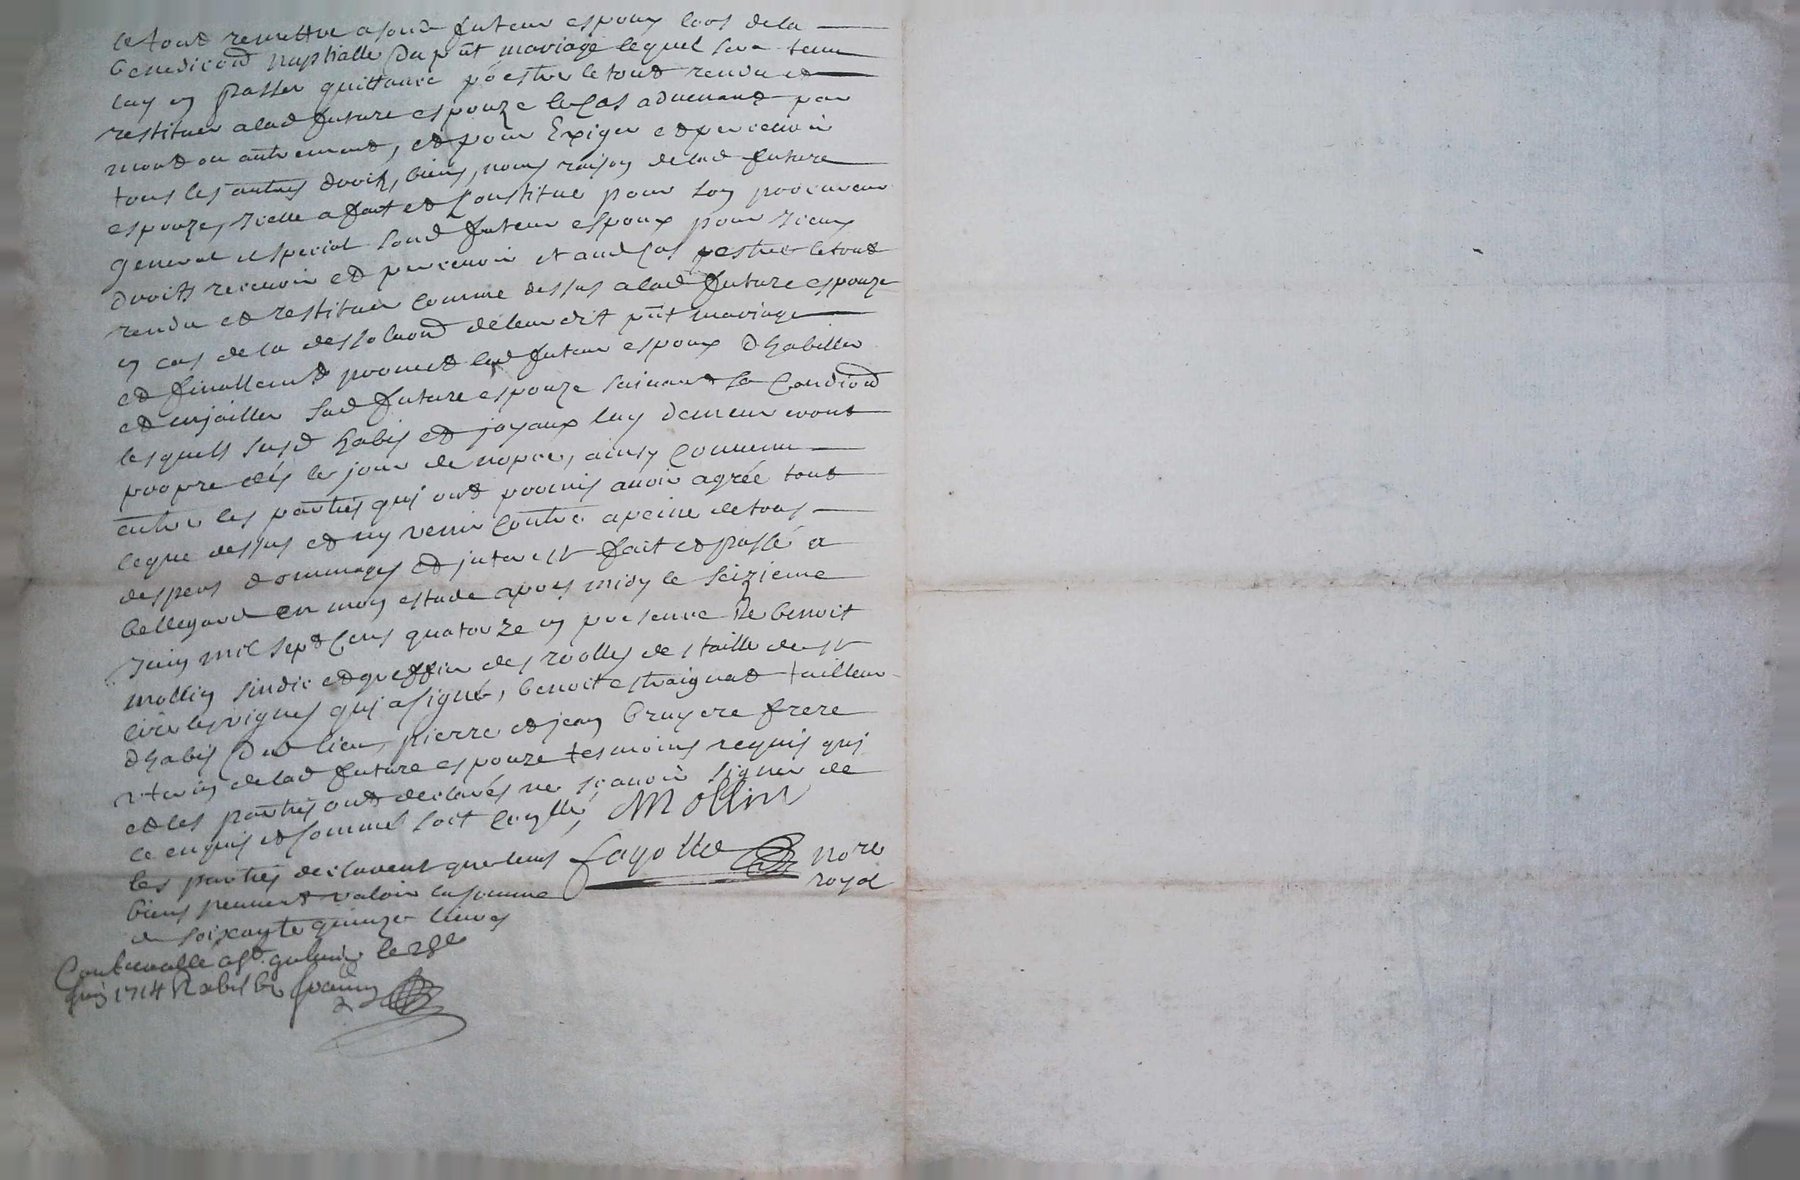 le tout remettre a sond futeur espoux lors de la
benediction nuptialle du pnt mariage lequel sera tenu
luy en passer quittance pr estre le tout rendu et
restituer a lad future espouze le cas advenant par
mort ou autrement, et pour Exiger et percevoir
tous les autres droits, biens, noms raison de lad future
espouze, icelle a fait et constitue pour son procureur
general et special sond futeur espoux pour iceux
droits recevoir et percevoir et aud cas pestre le tout
rendu et restituer comme dessus a lad future espouze
en cas de la dessolution de leur dit pnt mariage
et finallement promet led futeur espoux dhabiller
et enjailler sad future espouze suivant sa condition
lesquels susd habis et joyaux luy demeureront
propre des le jour de nopce, ainsy convenu
entre les parties qui ont promis avoir agrée tout
ce que dessus et ny venir contre a peine de tous
despens dommages et interest fait et passé a
bellegarde en mon estude apres midy le seizieme
Juin mil sept cens quatorze en presence de benoit
mollin sindic et greffier des roolles des taille de st
cire les vignes qui a signé, benoit estraignat tailleur
dhabis dud lieu, pierre et jean bruyere frere
uterin de lad future espouze tesmoins requis qui
et les parties ont declarés ne scavoir signer de
ce enquis et sommes soit controllé, Mollin
les parties declarent que leurs
biens peuvent valoir la somme
de soixante quinze livres
fayolle nore
royal
Controuollé a st galmier le 28e
juin 1714